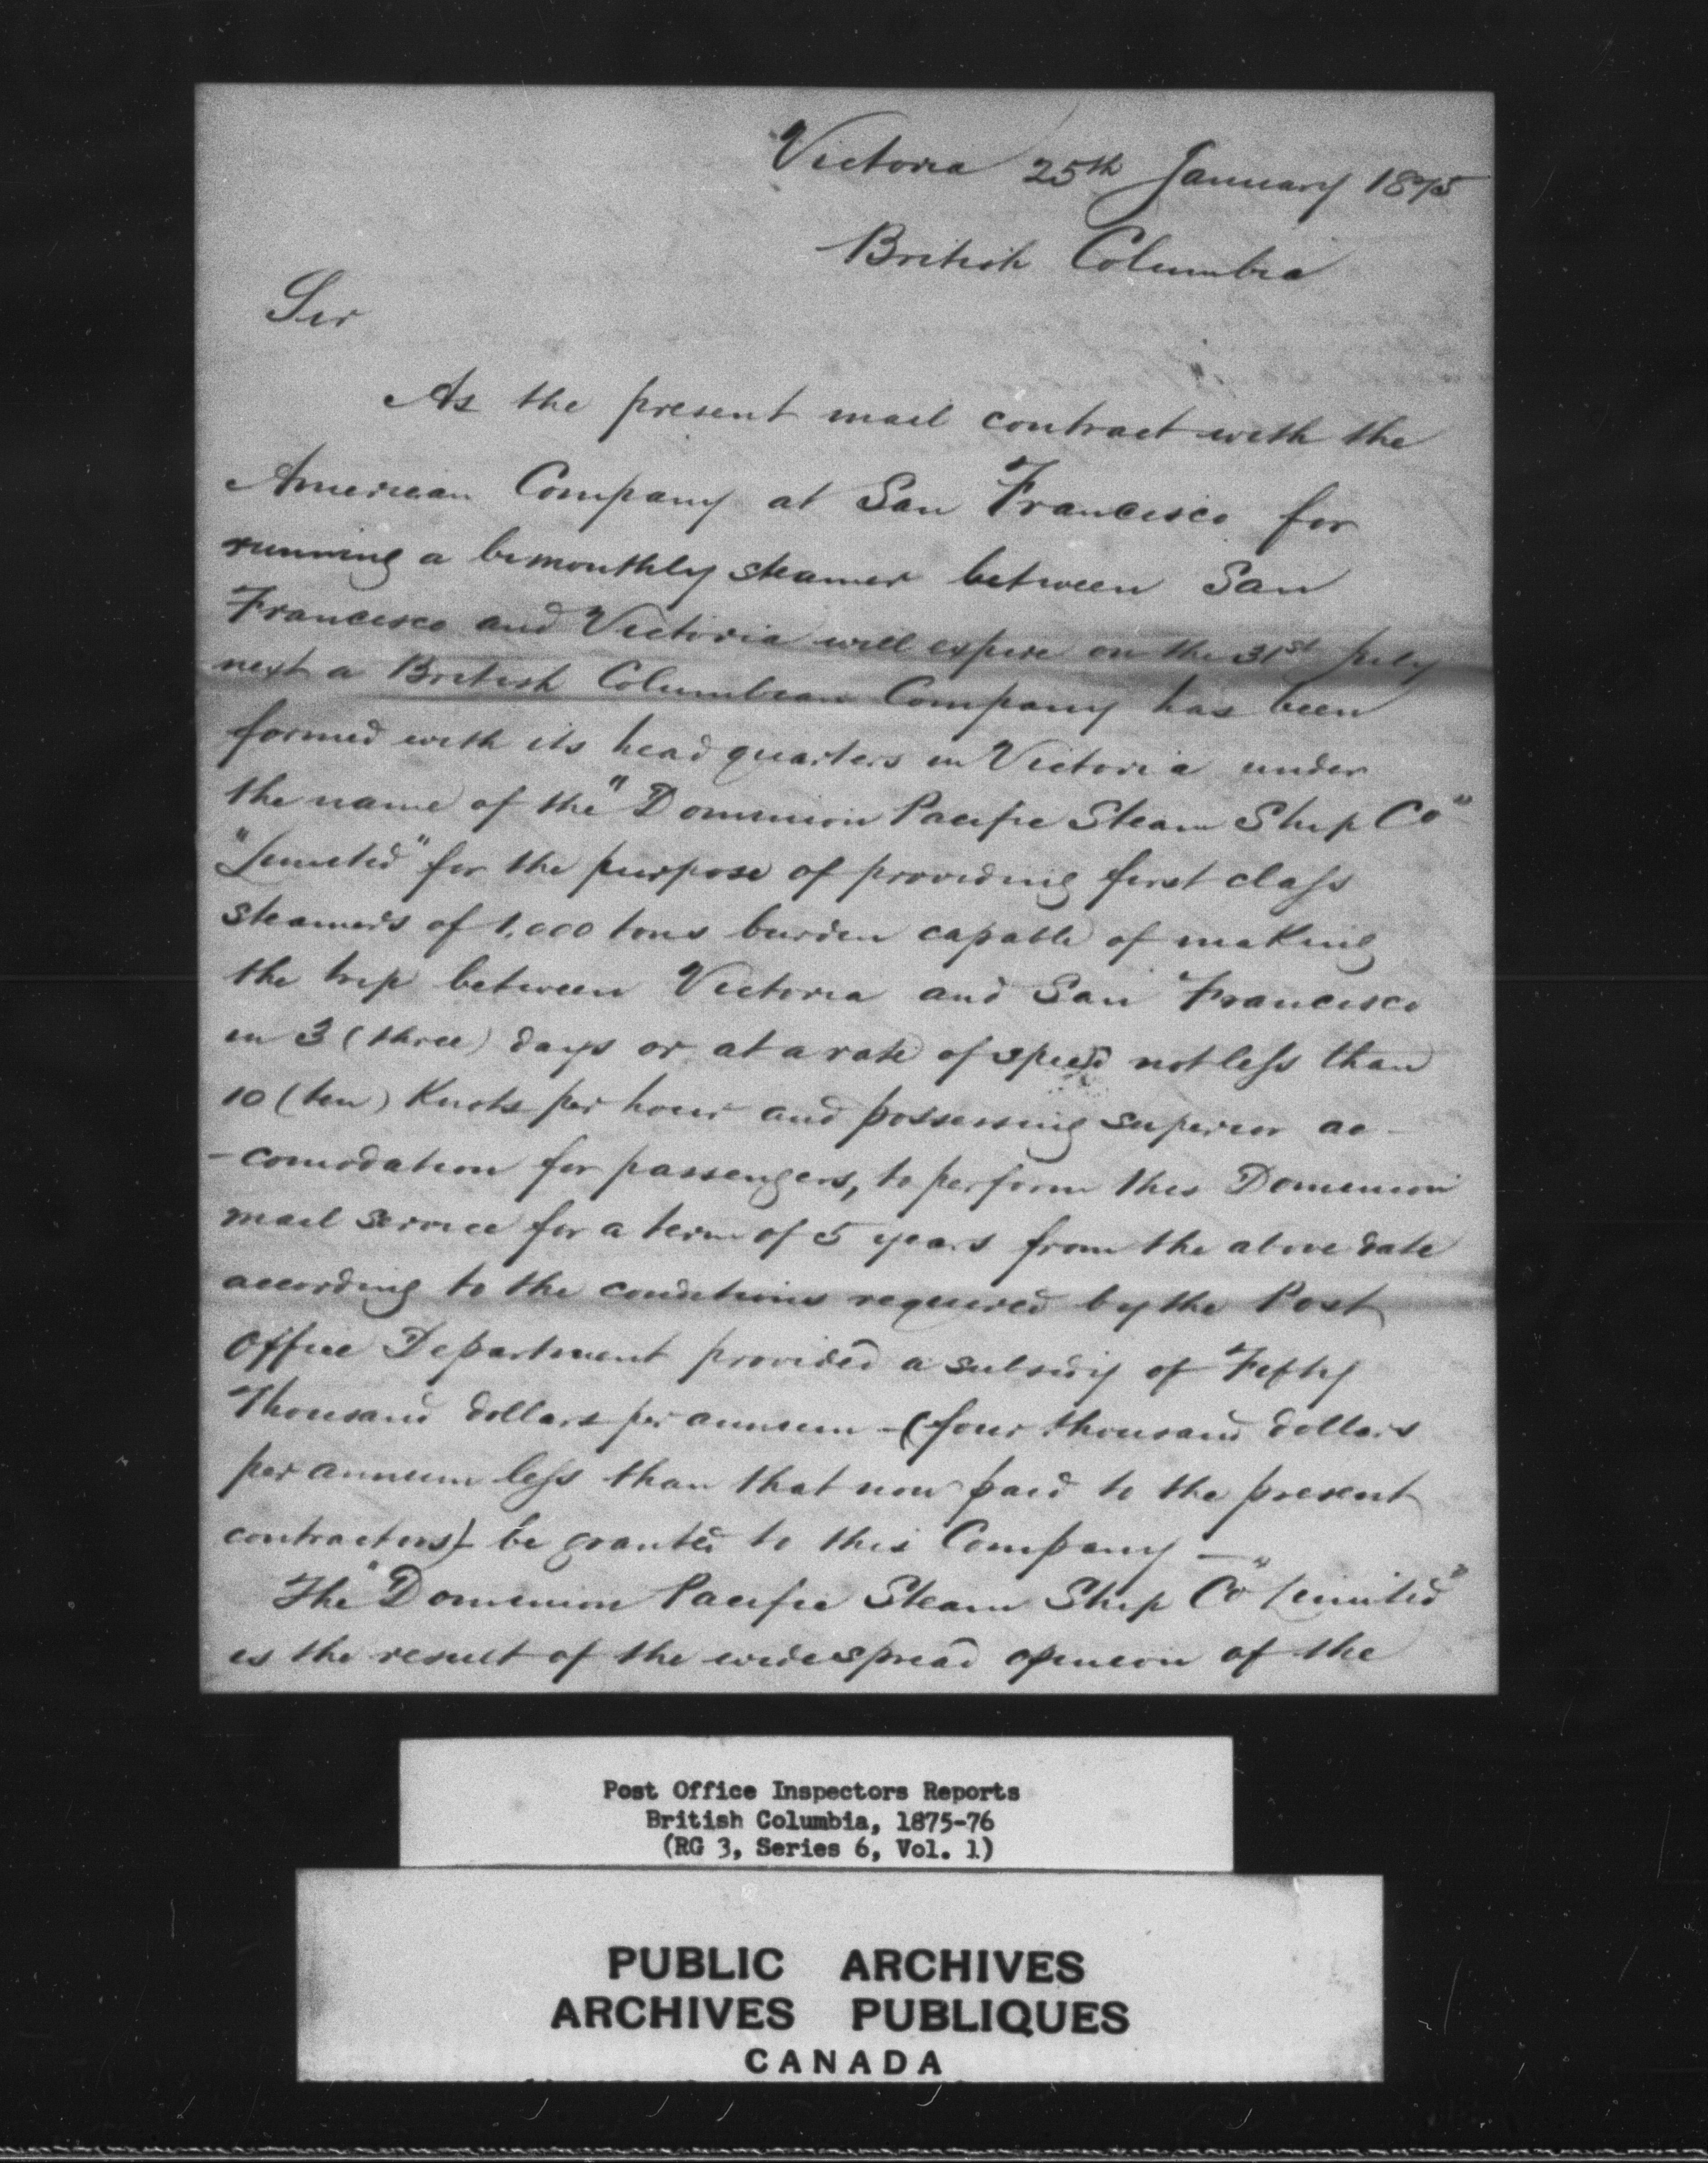 Victoria 25th January 1875
British Columbia
Sir
As the present mail contract with the
American Company at San Francisco for
running a bimonthly steamer between San
Francisco and Victoria will expire on the 31st July
next a British Columbian Company has been
formed with its head quarters in Victoria under
the name of the "Dominion Pacific Steam Ship Co"
"Limited" for the purpose of providing first class
steamers of 1,000 tons burden capable of making
the trip between Victoria and San Francisco
in 3 (three) days or at a rate of speed not less than
10 (ten) Knots per hour and possessing superior ac-
-comodation for passengers, to perform this Dominion
mail service for a term of 5 years from the above date
according to the conditions required by the Post
Office Department provided a subsidy of Fifty
Thousand dollars per annum - (four thousand dollars
per annum less than that now paid to the present
contractors) - be granted to this Company —
The "Dominion Pacific Steam Ship Co" Limited"
is the result of the widespread opinion of the
Post Office Inspectors Reports
British Columbia, 1875-76
(RG 3, Series 6, Vol. 1)
PUBLIC ARCHIVES
ARCHIVES PUBLIQUES
CANADA